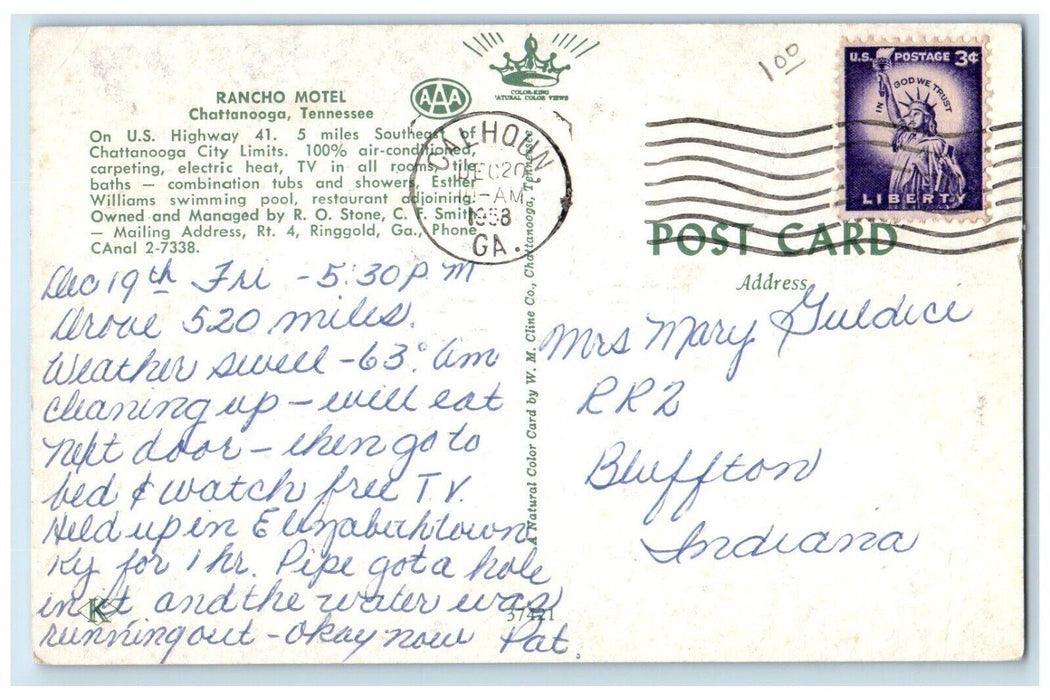 RANCHO MOTEL
Chattanooga, Tennessee
On U.S. Highway 41. 5 miles Southeast of
Chattanooga City Limits. 100% air-conditioned,
carpeting, electric heat, TV in all rooms, tile
baths — combination tubs and showers, Esther
Williams swimming pool, restaurant adjoining.
Owned and Managed by R. O. Stone, C. F. Smith
— Mailing Address, Rt. 4, Ringgold, Ga., Phone
CAnal 2-7338.
AAA
COLOR-KING
NATURAL COLOR VIEWS
CALHOUN,
DEC 20
1958
GA.
100
U.S. POSTAGE 3¢
IN GOD WE TRUST
LIBERTY
POST CARD
Address
Dec 19th Fri - 5:30 P M
Drove 520 miles.
Weather swell - 63° Am
cleaning up - will eat
next door - then go to
bed & watch free T.V.
Held up in Elizabethtown
Ky for 1 hr. Pipe got a hole
in it and the water was
running out - okay now Pat.
K
37421
A Natural Color Card by W. M. Cline Co., Chattanooga, Tennessee
Mrs Mary Guldice
RR2
Bluffton
Indiana